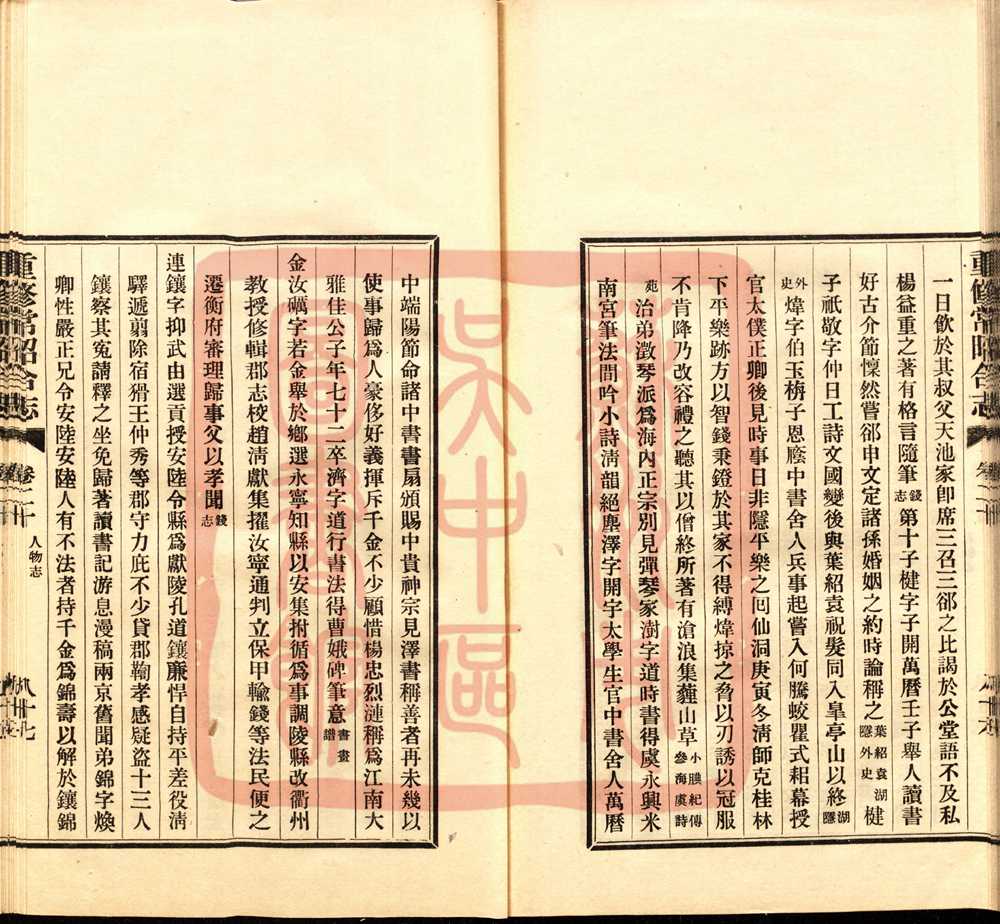 一日飲於其叔父天池家卽席三召三郤之比謁於公堂語不及私
楊益重之著有格言隨筆錢志第十子楗字子開萬曆壬子舉人讀書
好古介節懍然嘗郤申文定諸孫婚姻之約時論稱之葉紹袁湖隱外史楗
子祇敬字仲日工詩文國變後與葉紹袁祝髮同入臯亭山以終湖隱
外史煒字伯玉栴子恩廕中書舍人兵事起嘗入何騰蛟瞿式耜幕授
官太僕正卿後見時事日非隱平樂之囘仙洞庚寅冬淸師克桂林
下平樂跡方以智錢秉鐙於其家不得縛煒掠之脅以刃誘以冠服
不肯降乃改容禮之聽其以僧終所著有滄浪集蕹山草小腆紀傳參海虞詩
苑治弟澂琴派爲海內正宗別見彈琴家澍字道時書得虞永興米
南宮筆法間吟小詩淸韻絕塵澤字開宇太學生官中書舍人萬曆
中端陽節命諸中書書扇頒賜中貴神宗見澤書稱善者再未幾以
使事歸爲人豪侈好義揮斥千金不少顧惜楊忠烈漣稱爲江南大
雅佳公子年七十二卒濟字道行書法得曹娥碑筆意書畫譜
金汝礪字若金舉於鄉選永寧知縣以安集拊循爲事調陵縣改衢州
教授修輯郡志校趙淸獻集擢汝寧通判立保甲輸錢等法民便之
遷衡府審理歸事父以孝聞錢志
連鑲字抑武由選貢授安陸令縣爲獻陵孔道鑲廉悍自持平差役淸
驛遞翦除宿猾王仲秀等郡守力庇不少貸郡鞫孝感疑盜十三人
鑲察其寃請釋之坐免歸著讀書記游息漫稿兩京舊聞弟錦字煥
卿性嚴正兄令安陸安陸人有不法者持千金爲錦壽以解於鑲錦
重修常昭合志
卷二十
人物志
重修常昭合志
吳中區